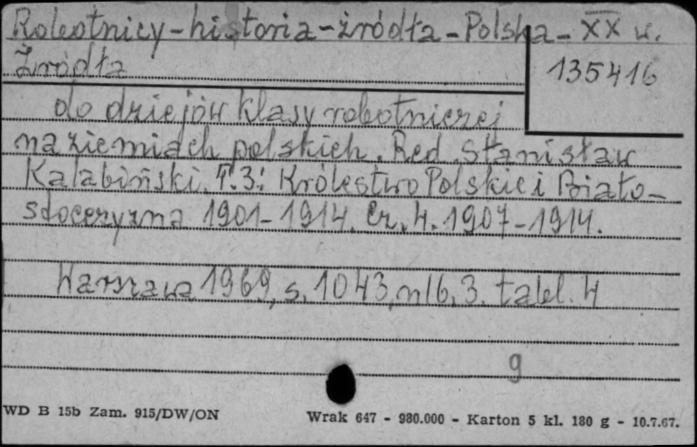 Robotnicy-historia-źródła-Polska-XX w.
Źródła
135416
do dziejów klasy robotniczej
na ziemiach polskich. Red. Stanisław
Kalabiński. T.3: Królestwo Polskie i Biało-
stocczyzna 1901-1914. Cz. 4. 1907-1914.
Warszawa 1969, s. 1043, nlb. 3. tabl. 4
9
WD B 15b Zam. 915/DW/ON
Wrak 647 - 980.000 - Karton 5 kl. 180 g - 10.7.67.